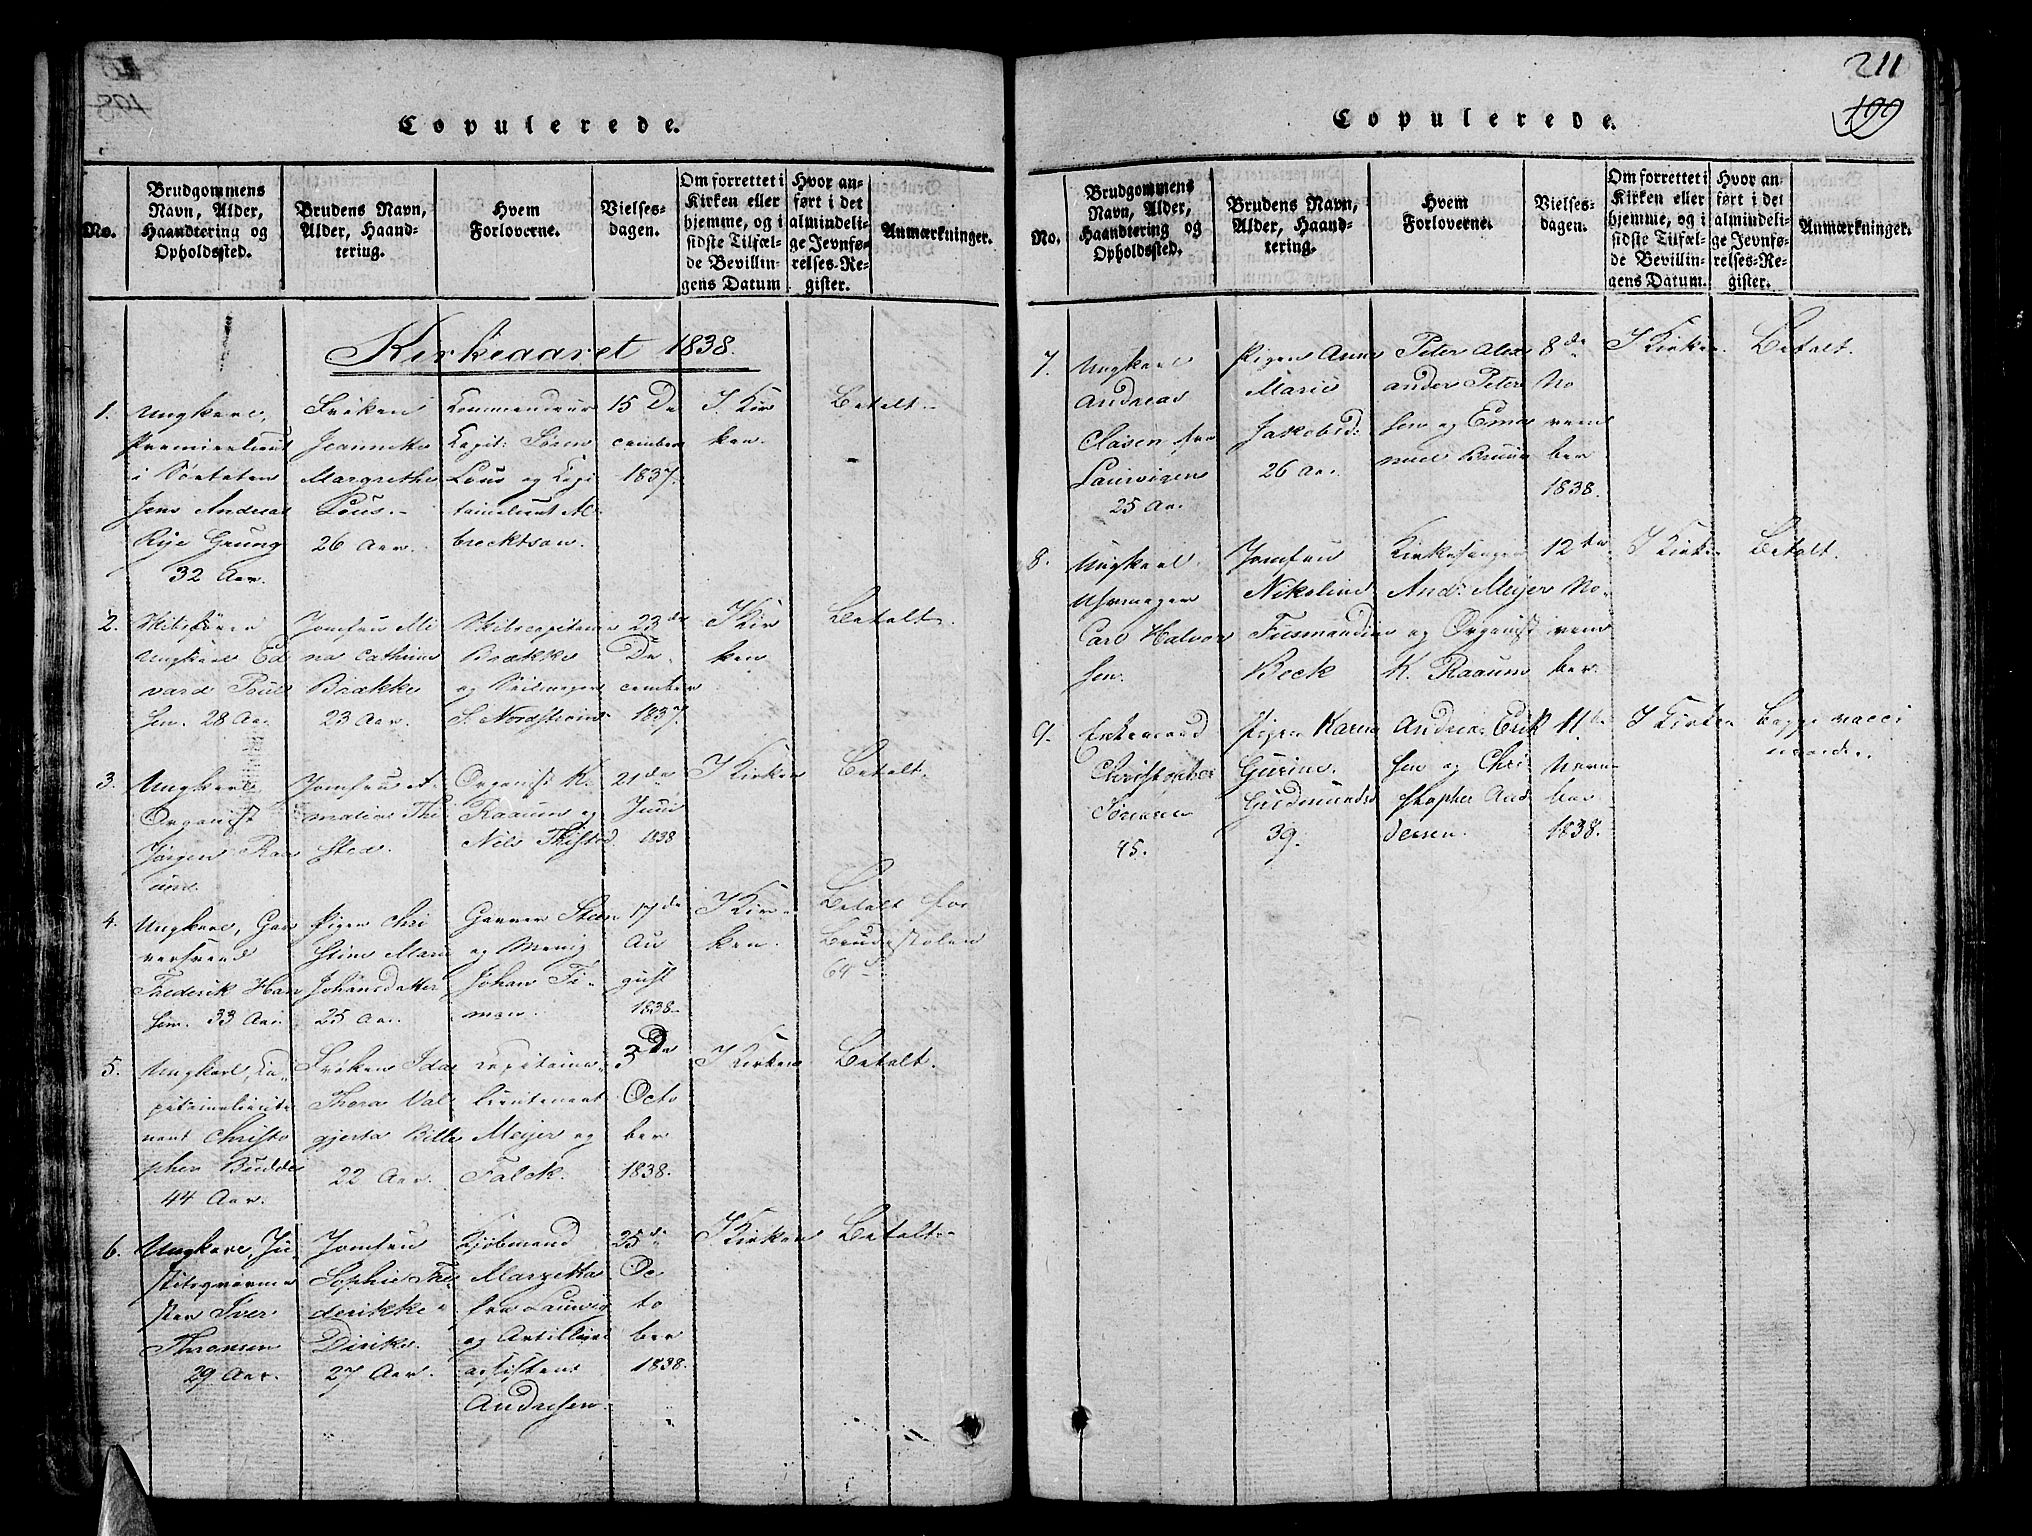 Copulerede.
No.
Brudgommens
Navn, Alder,
Haandtering og
Opholdssted.
Brudens Navn,
Alder, Haand-
tering.
Hvem
Forloverne.
Vielses-
dagen.
Om forrettet i
Kirken eller
hjemme, og i
sidste Tilfæl-
de Bevillin-
gens Datum
Hvor an-
ført i det
almindeli-
ge Jevnfø-
relses-Re-
gister.
Anmærkninger.
Kirkeaaret 1838.
1.
Ungkarl,
Premierlieut
i Søetaten
Jens Andreas
Rye Grung
32 Aar.
Frøken
Jeannette
Margrethe
Lous.
26 Aar.
Commandeur
Capit: Søren
Lous og Capi
tainlieut Al
brecktson.
15 De
cember
1837.
I Kir
ken.
Betalt.
2.
Skibsfører
Ungkarl Ed
vard Poul
sen. 28 Aar
Jomfru Mi
na Cathrine
Brække
23 Aar.
Skibscapitain
Brække
og Seilmager
S. Nordstrøm
23de
De-
cember
1837.
I Kir
ken
Betalt.
3.
Ungkarl
Organist
Jørgen Raa
um.
Jomfru A-
malia Thi
sted.
Organist K.
Raaum og
Niels Thisted
21de
Juni
1838
I Kirken
Betalt.
4.
Ungkarl, Gar
versvend
Frederik Han
sen. 33 Aar.
Pigen Chri
stine Marie
Johansdatter
25 Aar.
Garver Steen
og Menig
Johan Ti-
man.
17de
Au
gust
1838.
I Kir-
ken.
Betalt for
Brudestolen
64
5.
Ungkarl, Ca-
pitainlieute
nant Christo
pher Budde
44 Aar.
Frøken Ida
Thora Val
gjerta Bille
22 Aar.
Capitain-
Lieutenant
Meijer og
Falck.
3de
Octo
ber
1838.
I Kirken
Betalt.
6.
Ungkarl, Ju-
Iver
Thronsen
29 Aar.
Jomfru
Sophie Fre
derikke
Diriks.
27 Aar.
Kjøbmand
Margetta
fra Laurvig
og Artilleri
assistent
Andresen.
25de
Oc
to
ber
1838.
I Kirken
Betalt.
211
199
Copulerede.
No.
Brudgommens
Navn, Alder,
Haandtering og
Opholdssted.
Brudens Navn,
Alder, Haand-
tering.
Hvem
Forloverne.
Vielses-
dagen.
Om forrettet i
Kirken eller
hjemme, og i
sidste Tilfæl-
de Bevillin-
gens Datum.
Hvor an-
ført i det
almindeli-
ge Jevnfø-
relses-Re-
gister.
Anmærkninger.
7.
Ungkarl
Andreas
Clasen fra
Laurvigen
25 Aar.
Pigen Anne
Marie
Jakobsd:
26 Aar.
Peter Alex
ander Peter
sen og Ema
nuel Bruun
8de
No
vem
ber
1838.
I Kirken.
Betalt.
8.
Ungkarl
Uhrmager
Carl Halvor
sen.
Jomfru
Nikoline
Beck
Kirkesanger
And: Meijer
og Organist
K. Raaum
12te
No-
vem
ber.
I Kirken
Betalt.
9.
Enkemand
Christopher
Sørensen
45.
Pigen Karen
Gurine
Gudmundsd
39.
Andreas Erik
sen og Chri
stopher And
dersen.
11te
Novem
ber
1838.
I Kirken
Begge vacci
nerede.